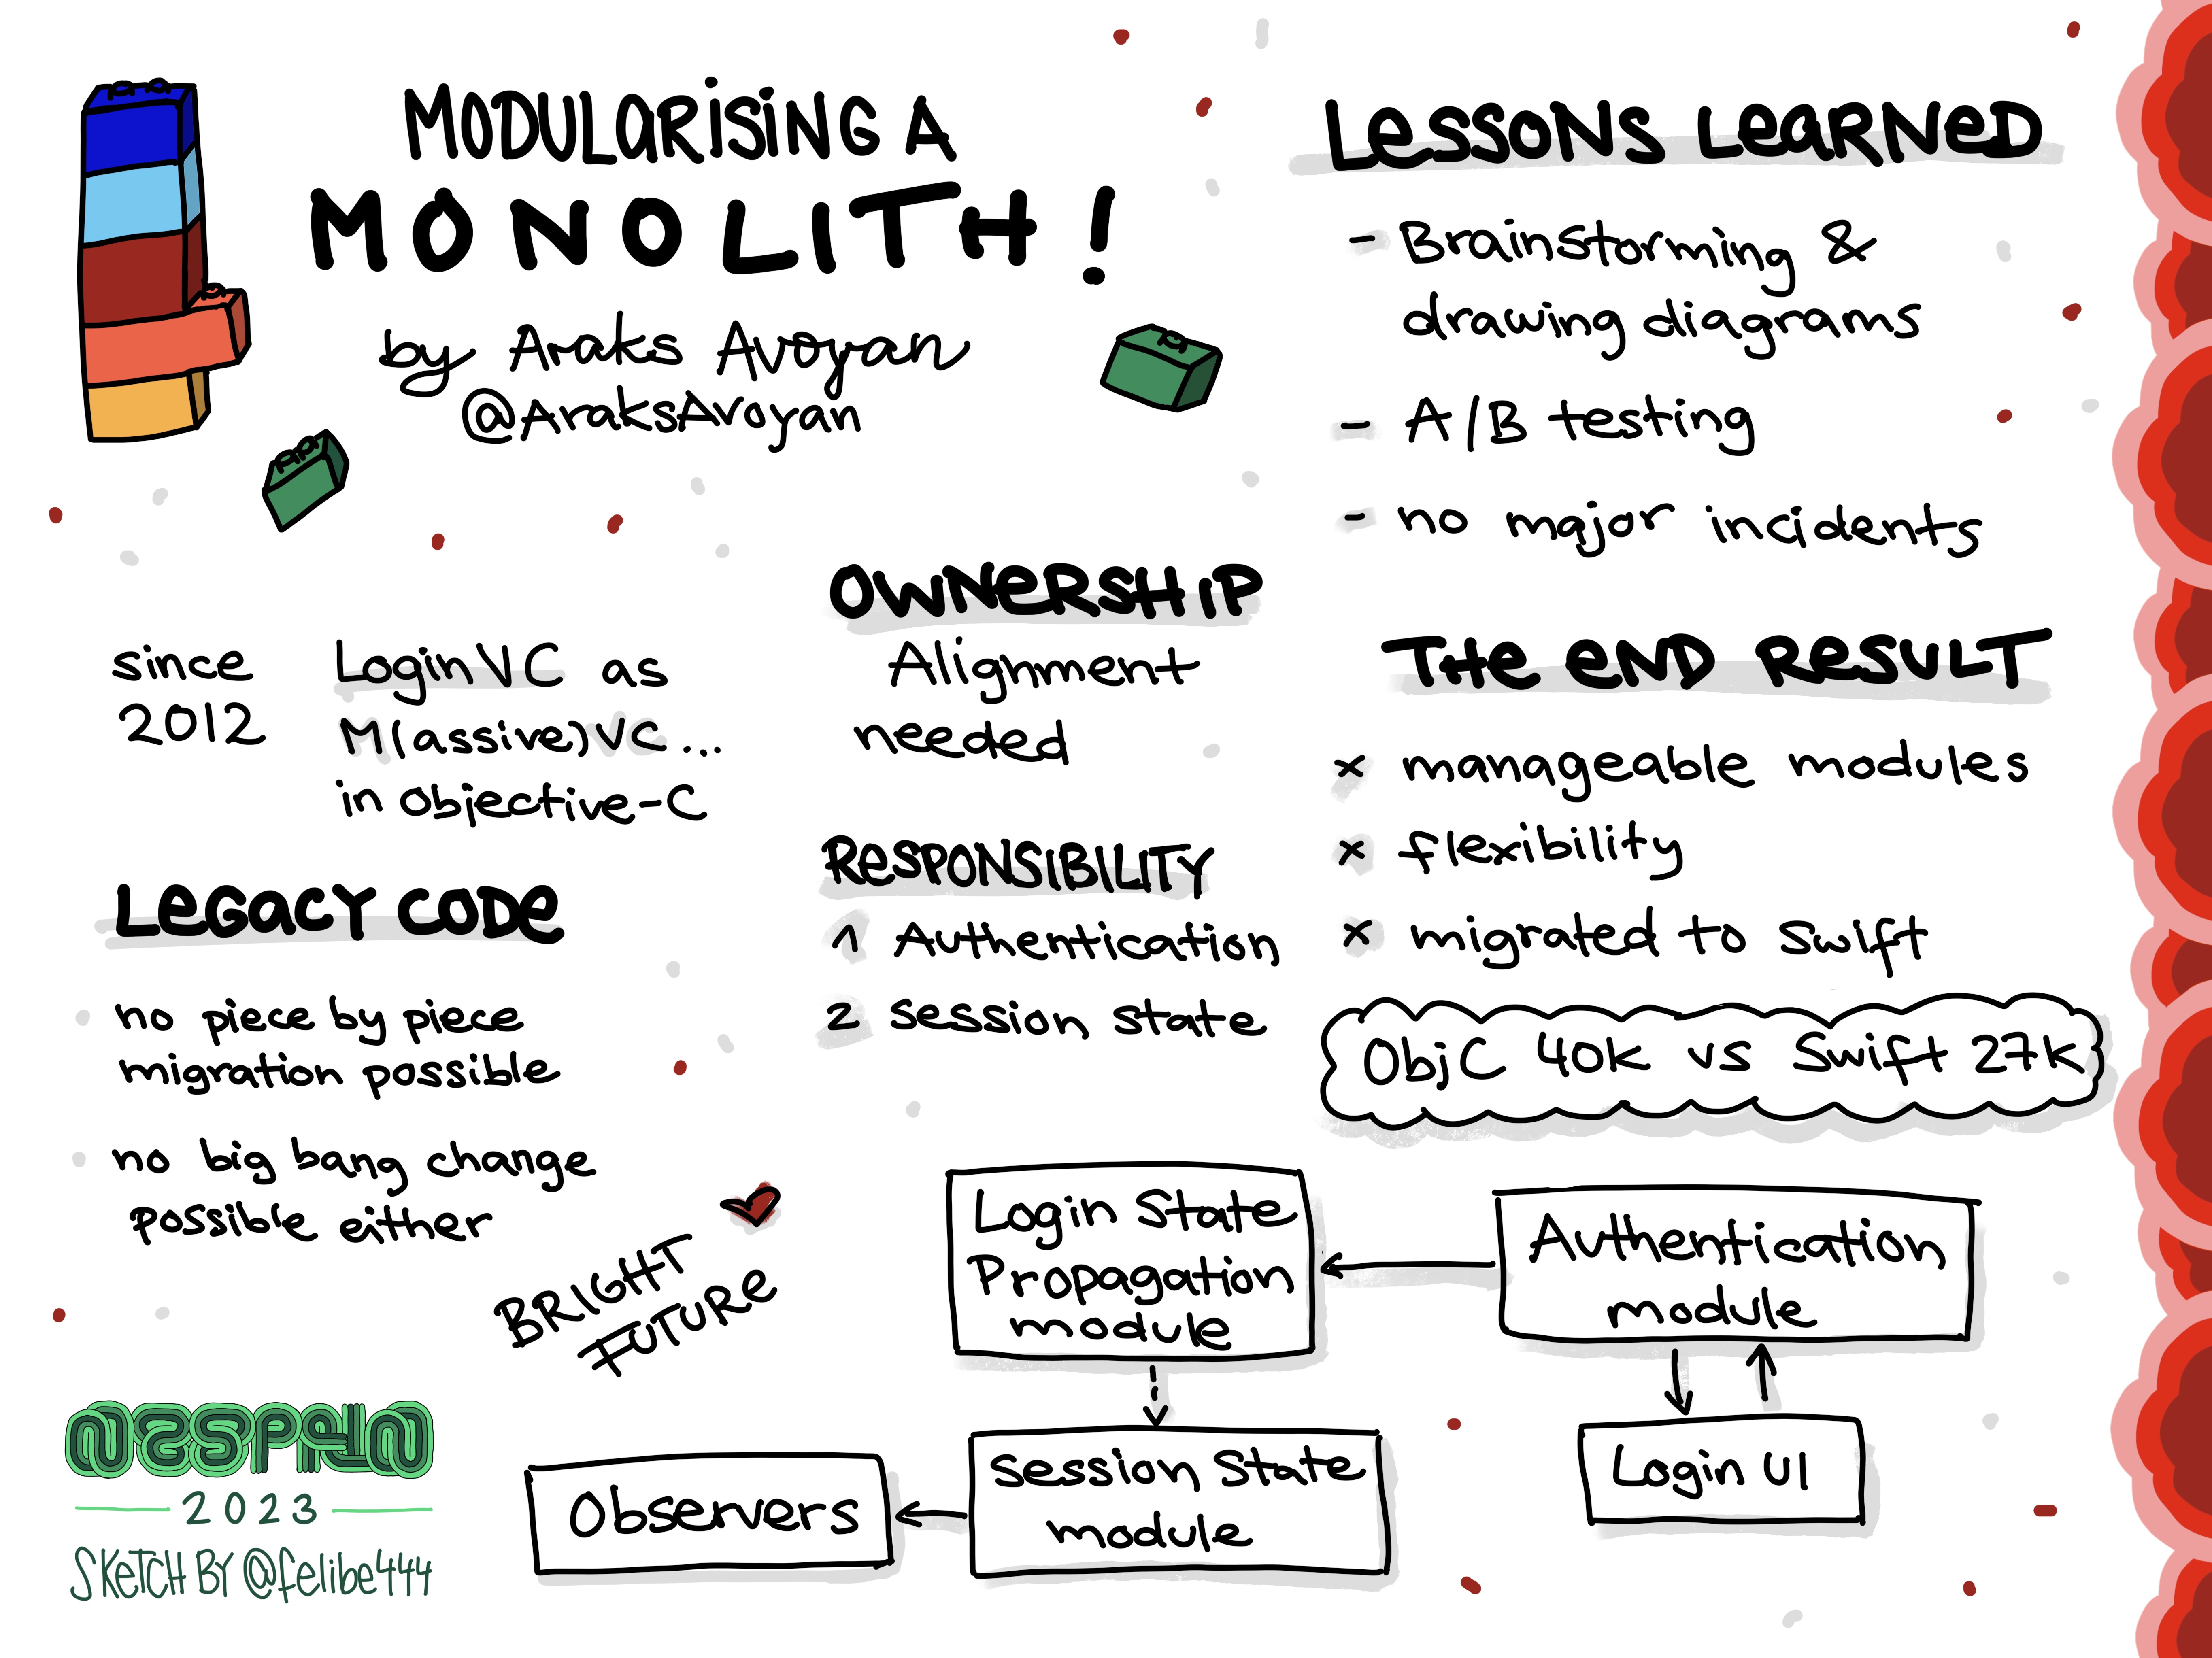 MODULARISING A
MONOLITH!
by Araks Avoyan
@AraksAvoyan
since
2012
LoginVC as
M(assive)VC...
in Objective-C
LEGACY CODE
no piece by piece
migration possible
no big bang change
possible either
BRIGHT
FUTURE
OWNERSHIP
Alignment
needed
RESPONSIBILITY
1 Authentication
2 Session State
LESSONS LEARNED
- Brainstorming &
drawing diagrams
- A/B testing
- no major incidents
THE END RESULT
x manageable modules
x flexibility
x migrated to Swift
ObjC 40k vs Swift 27k
Login State
Propagation
module
Authentication
module
Login UI
Session State
module
Observers
2023
SKETCH BY @felibe444